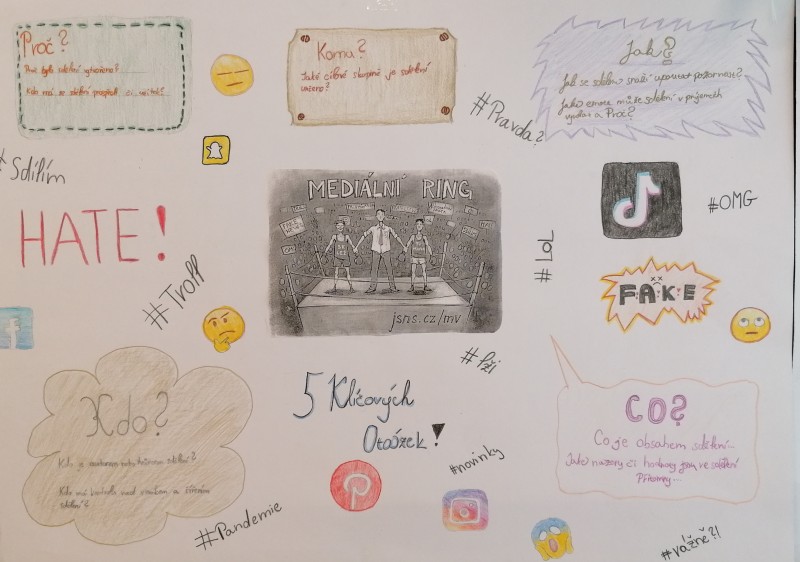 Proč?
Proč bylo sdělení vytvořeno?
Kdo má ze sdělení prospěch či
Komu?
Jaké cílové skupině je sdělení
určeno?
Jak?
Jak se sdělení snaží upoutat pozornost?
Jaké emoce může sdělení v příjemcích
vyvolat a Proč?
#Pravda?
# Sdílím
HATE!
#Troll
MEDIÁLNÍ RING
jsns.cz/mv
#LOL
#OMG
FAKE
#lži
5 Klíčových
Otázek!
Kdo?
Kdo je autorem sdělení?
Kdo má kontrolu nad a šířením
sdělení?
CO?
Co je obsahem sdělení...
Jaké názory či hodnoty jsou ve sdělení
Přítomny...
#novinky
#Pandemie
#Vážně?!